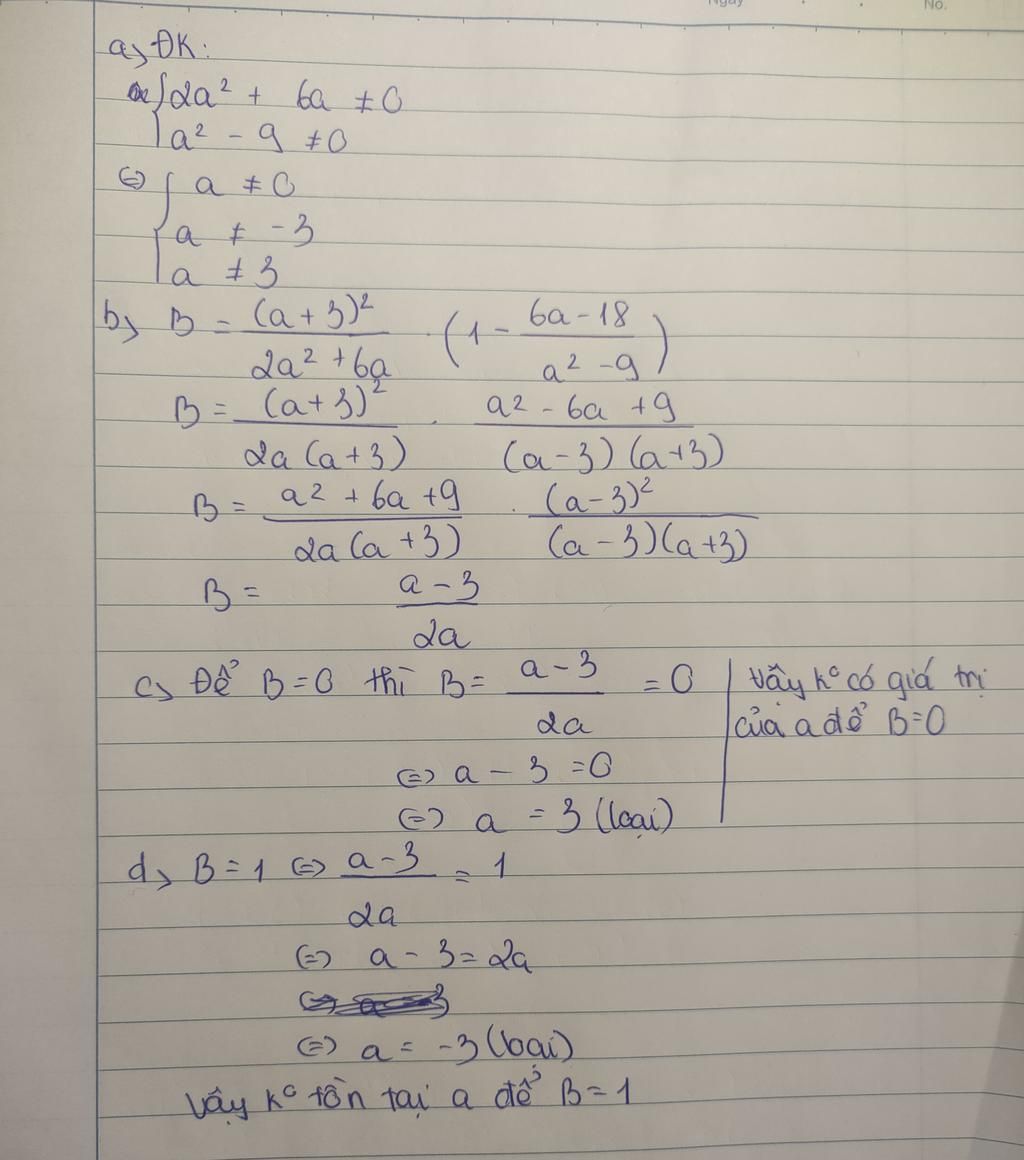 Ngày
No.
a, ĐK:
{2a² + 6a ≠ 0
a² - 9 ≠ 0
⇔ { a ≠ 0
a ≠ -3
a ≠ 3
b, B = (a+3)² / (2a² + 6a) . (1 - (6a - 18)/(a² - 9))
B = (a+3)² / (2a(a+3)) . (a² - 6a + 9)/((a-3)(a+3))
B = (a² + 6a + 9)/(2a(a+3)) . (a-3)²/((a-3)(a+3))
B = (a - 3)/(2a)
c, Để B=0 thì B = (a - 3)/(2a) = 0
⇔ a - 3 = 0
⇔ a = 3 (loại)
Vậy k° có giá trị
của a để B=0
d, B = 1 ⇔ (a-3)/(2a) = 1
⇔ a - 3 = 2a
⇔ a = -3 (loại)
Vậy k° tồn tại a để B = 1